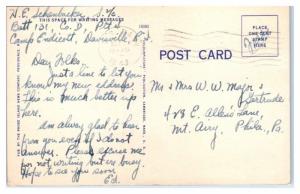 N.E. Schenbucker S 1/c
Batt 131, Co. D, Plt 2
Camp Endicott, Davisville, R.I.
THIS SPACE FOR WRITING MESSAGES
POST CARD
PLACE
ONE CENT
STAMP
HERE
Day Folks
Just a line to let you
know my new address.
This is much better up
here.
am always glad to hear
from you even if I do not
answer. Please excuse me
for not writing but is busy
Hope to see you soon
Ed.
Mr & Mrs W. W. Major &
Gertrude
428 E. Allens Lane,
Mt. Airy, Phila, Pa.